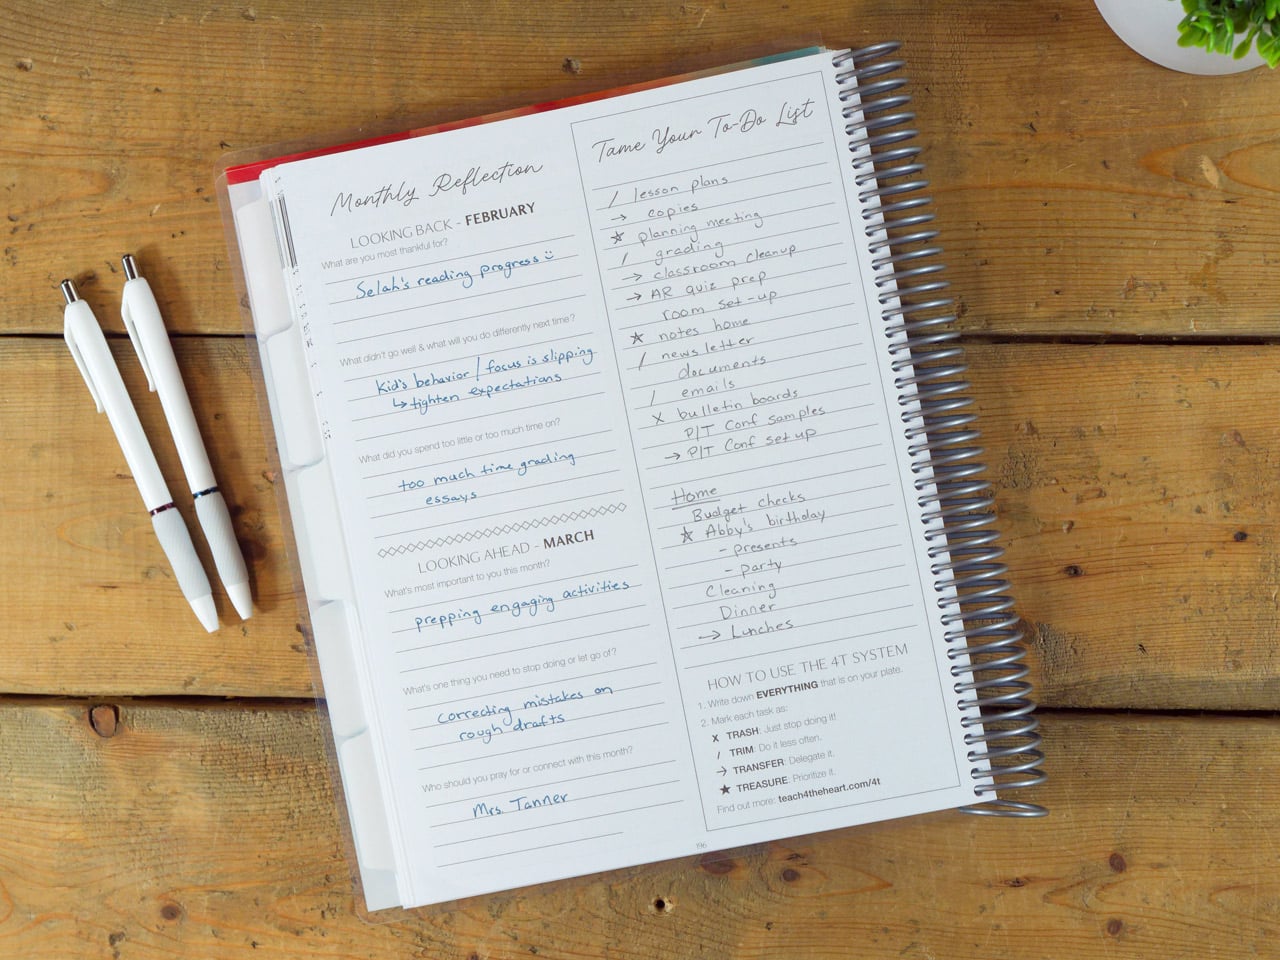 Monthly Reflection
LOOKING BACK - FEBRUARY
What are you most thankful for?
Selah's reading progress
What didn't go well & what will you do differently next time?
Kid's behavior / focus is slipping
↳ tighten expectations
What did you spend too little or too much time on?
too much time grading
essays
LOOKING AHEAD - MARCH
What's most important to you this month?
prepping engaging activities
What's one thing you need to stop doing or let go of?
correcting mistakes on
rough drafts
Who should you pray for or connect with this month?
Mrs. Tanner
Tame Your To-Do List
/ lesson plans
→ copies
★ planning meeting
/ grading
→ classroom cleanup
→ AR quiz prep
room set-up
★ notes home
/ newsletter
documents
/ emails
X bulletin boards
P/T Conf samples
→ P/T Conf set up
Home
Budget checks
★ Abby's birthday
- presents
- party
Cleaning
Dinner
→ Lunches
HOW TO USE THE 4T SYSTEM
1. Write down EVERYTHING that is on your plate.
2. Mark each task as:
X TRASH: Just stop doing it!
/ TRIM: Do it less often.
→ TRANSFER: Delegate it.
★ TREASURE: Prioritize it.
Find out more: teach4theheart.com/4t
196